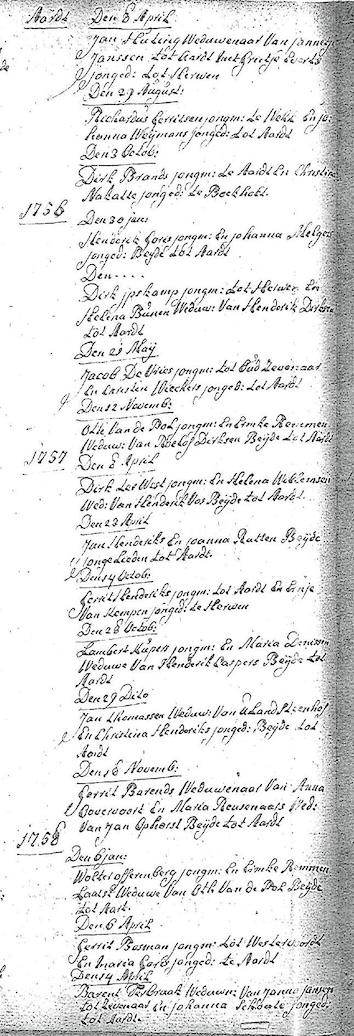 Aardt Den 8 April
Jan Huting Weduwenaar Van Jannetje
Janssen Tot Aardt met Grietje Everts
jonged: Tot Herwen
Den 29 August:
Richardus Gerritsen jongm: te Wehl En Jo
hanna Weymans jonged: Tot Aardt
Den 3 Octob:
Dirk Brands jongm: te Aardt En Christina
Nakatte jonged: te Bockholt
1756 Den 30 jan:
Henderik Gores jongm: En Johanna
jonged: Beyde tot Aardt
Den . . . .
Dirk jpskamp jongm: Tot Herwen En
Helena Bunen Weduw: Van Henderik Dirksen
tot Aardt
Den 21 May
Jacob De Vries jongm: tot Oud Zevenaar
En Christin Wiekers jonged: tot Aardt
Den 12 Novemb:
Oth Van de Pol jongm: En Emke Remmen
Weduw: Van Roelof Dirksen Beyde tot Aardt
1757 Den 8 April
Dirk Ter West jongm: En Helena Willemsen
Wed: Van Henderik Vos Beyde tot Aardt
Den 23 April
Jan Hendriks En Joanna Rutten Beyde
jonge Lieden tot Aardt.
Den 14 Octob:
Gerrit Henderiks jongm: tot Aardt En
Van Kempen jonged: te Herwen
Den 28 Octob:
Lambert Kupers jongm: En Maria Denissen
Weduwe Van Henderik Caspers Beyde tot
Aardt
Den 29 Dito
Jan Thomassen Weduw: Van
En Christina Henderiks jonged: Beyde tot
Aardt
Den 18 Novemb:
Gerrit Barends Weduwenaar Van Anna
Bovervoort En Maria Reusenaars Wed:
Van Jan Ophorst Beyde tot Aardt
1758
Den 6 jan:
Wolter offenberg jongm: En Emke Remmen
Laatst Weduwe Van Oth Van de Pol Beyde
tot Aart.
Den 6 April
Gerrit Bosman jongm: tot Westervoordt
En Maria Gores jonged: te Aardt
Den 14 April
Barent Terbraak Weduwn: Van Janna Jansen
tot Zevenaar En Johanna Scholte jonged:
tot Aardt.